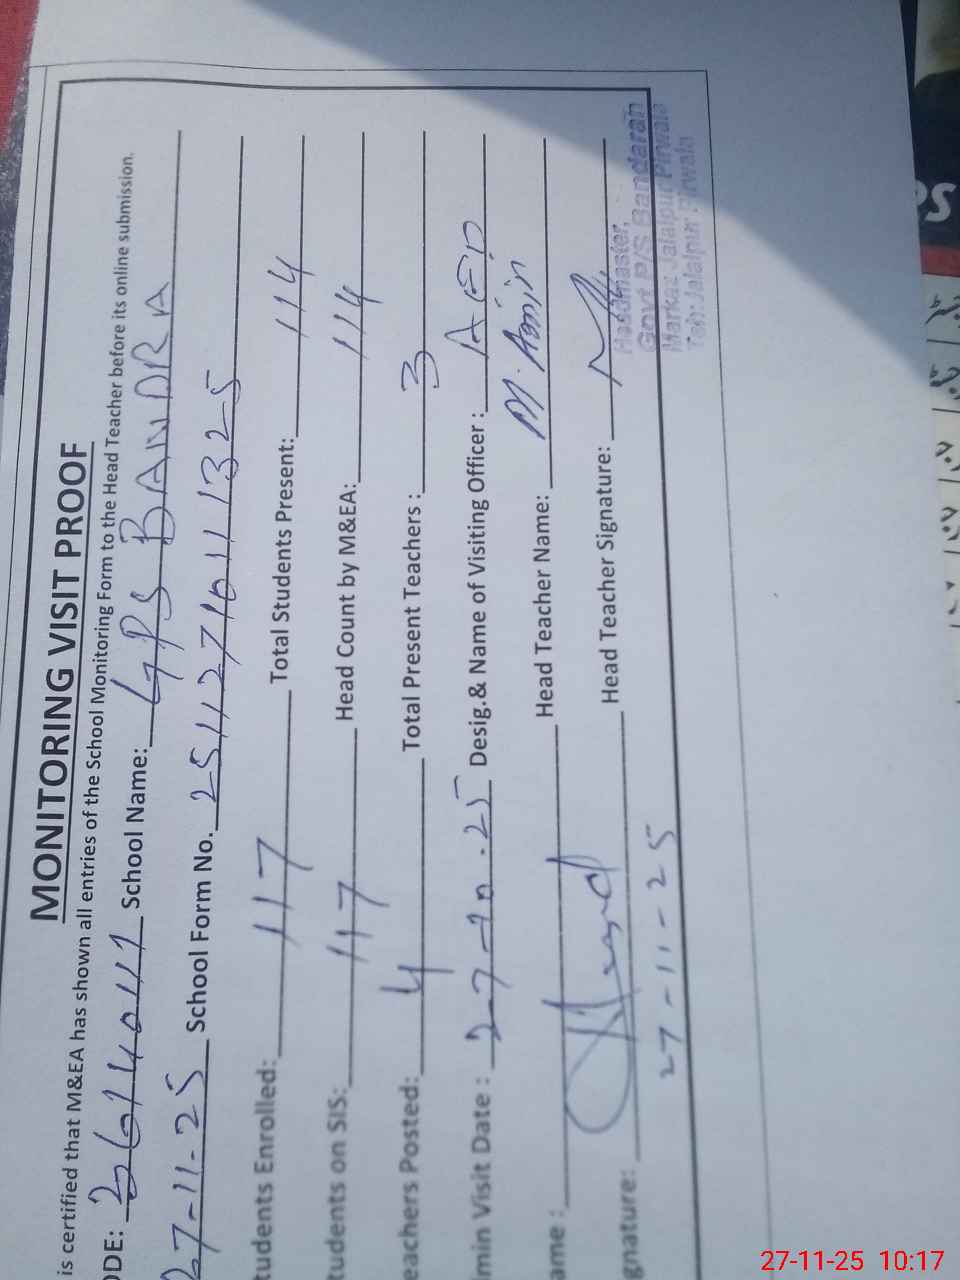 MONITORING VISIT PROOF
is certified that M&EA has shown all entries of the School Monitoring Form to the Head Teacher before its online submission.
ODE: School Name: GPS BANDRA
27-11-25 School Form No. 2511271011325
tudents Enrolled: 117 Total Students Present: 114
tudents on SIS: 117 Head Count by M&EA: 114
eachers Posted: 4 Total Present Teachers : 3
min Visit Date : 27-10.25 Desig.& Name of Visiting Officer : AEO
ame : Head Teacher Name: M. Amin
gnature: Head Teacher Signature:
27-11-25
Headmaster,
Govt P/S Bandarah
Markaz Jalalpur Pirwala
Teh: Jalalpur Pirwala
PS
27-11-25 10:17